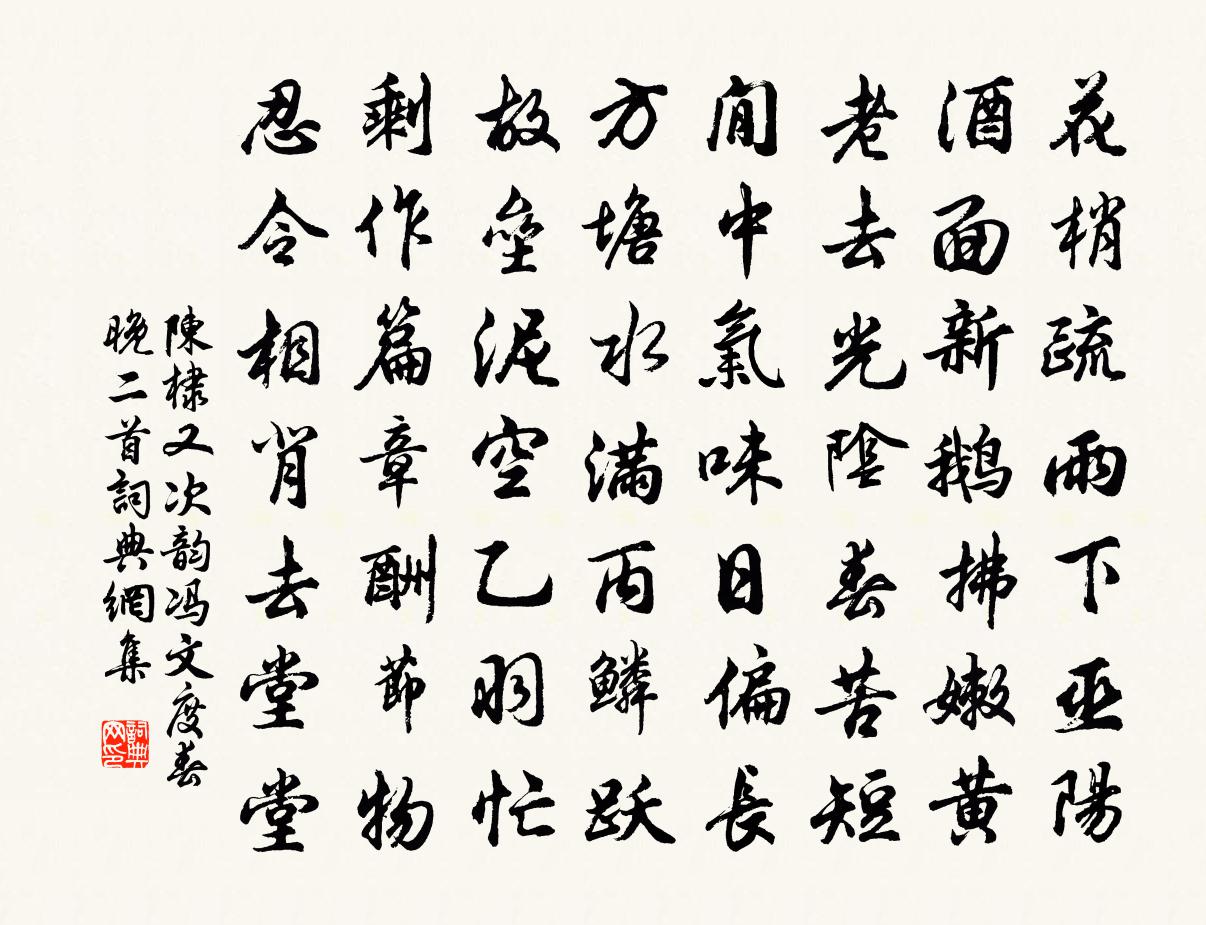 花梢疏雨下巫陽
酒面新鹅拂嫩黄
老去光陰春苦短
閒中氣味日偏長
方塘水满丙鳞跃
故壘泥空乙羽忙
剩作篇章酬節物
忍令相背去堂堂
陳棣又次韵冯文度春
晚二首詞典網集
詞典
网印